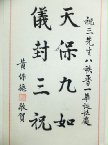 祝三先生八秩晉一華誕誌慶
天保九如
儀封三祝
黃保德敬賀